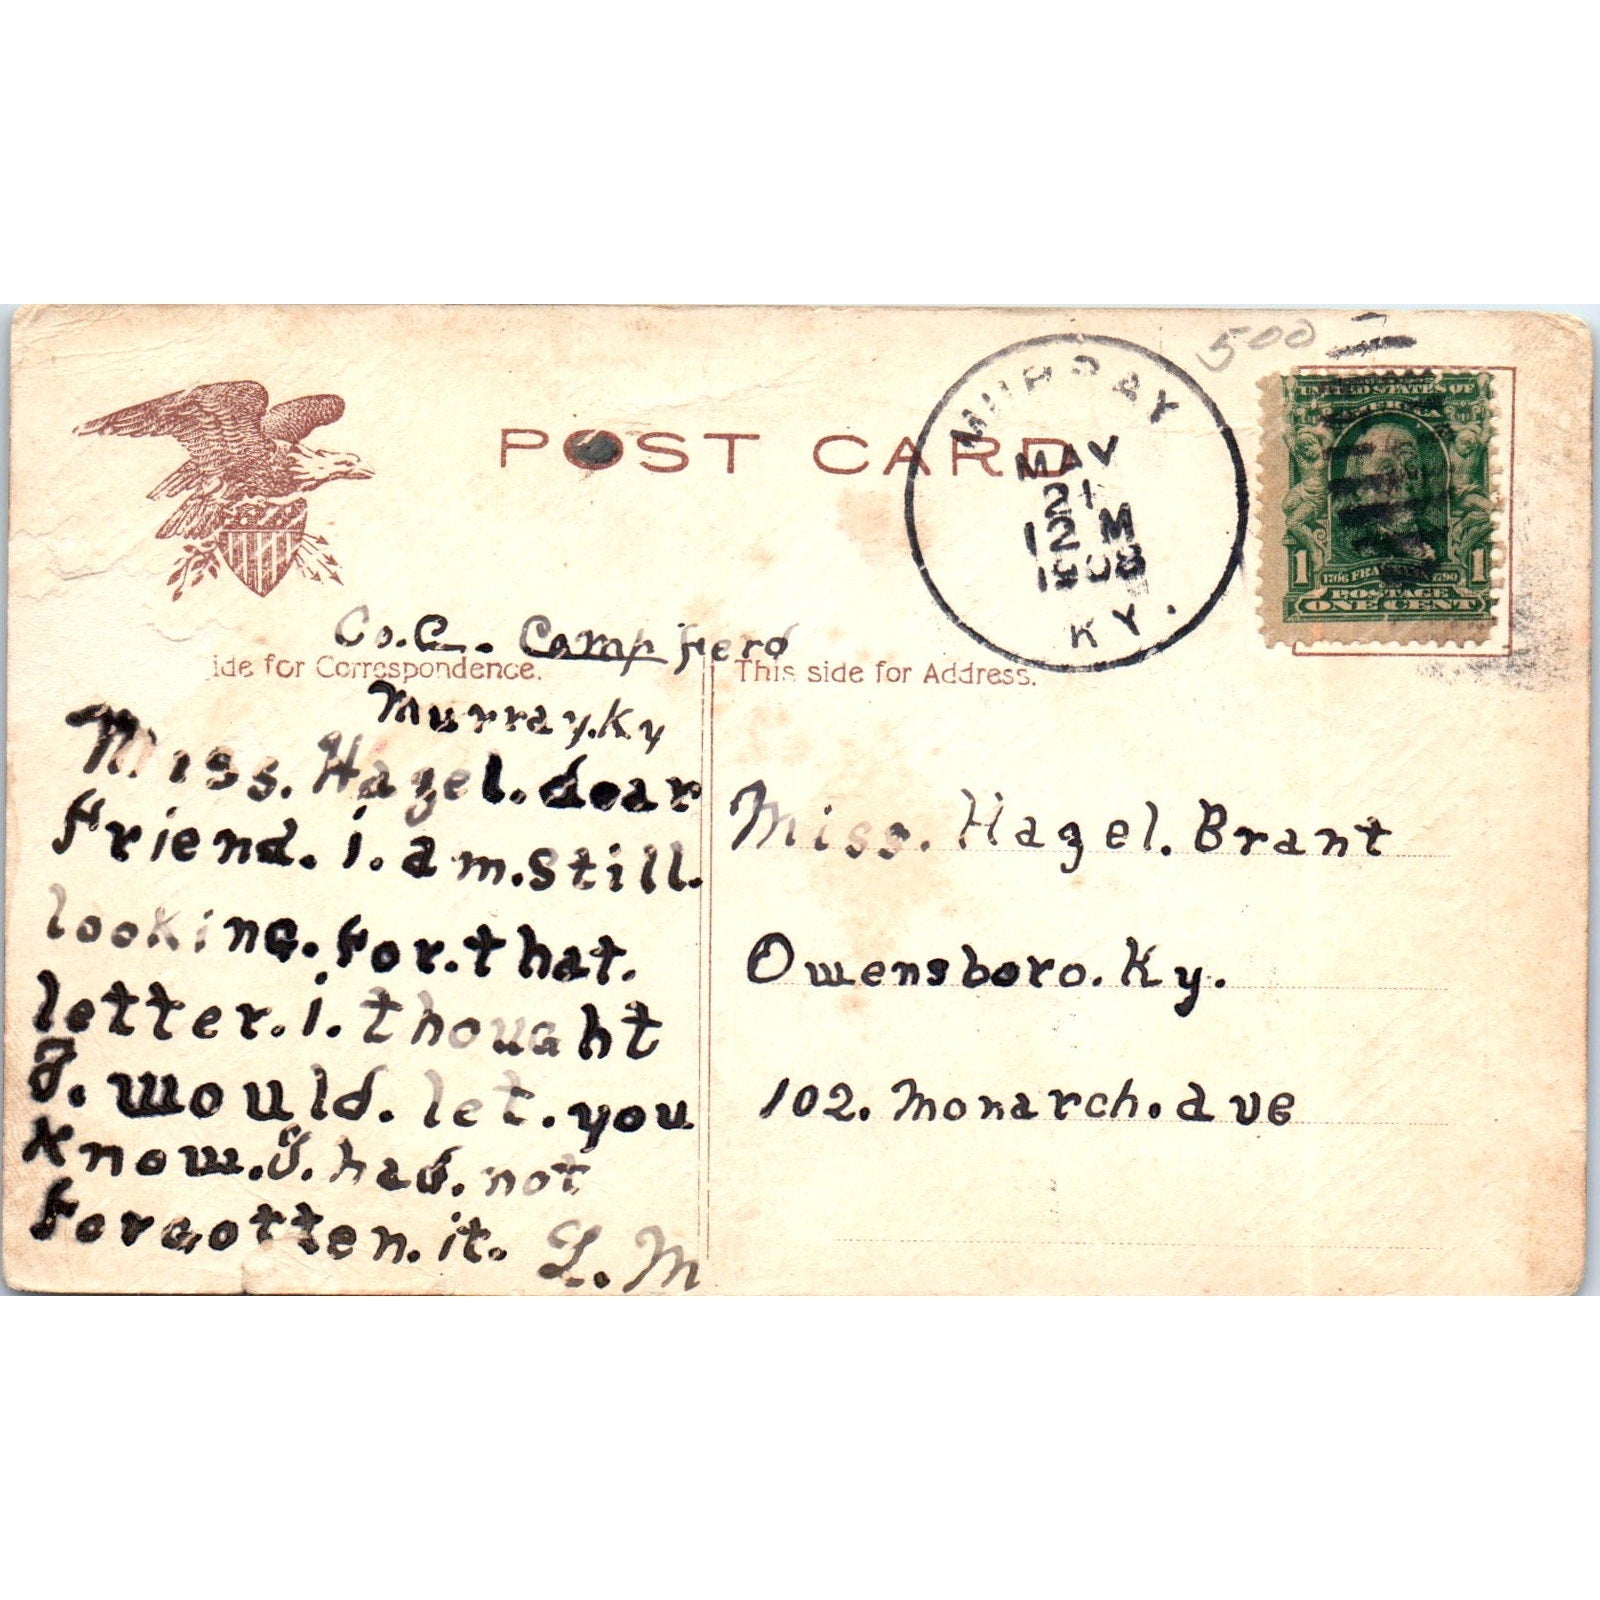 500
MURRAY
MAY
21
12 M
1908
KY.
UNITED STATES OF
AMERICA
1 1
1706 FRANKLIN 1790
POSTAGE
ONE CENT
POST CARD
Co. C. Camp fierd
ide for Correspondence.
This side for Address.
Murray. Ky
Miss. Hazel. dear
friend. i. am. still.
looking. for. that.
letter. i. thought
I. would. let. you
know. I. had. not
forgotten. it. L. M
Miss. Hazel. Brant
Owensboro. Ky.
102. Monarch. ave